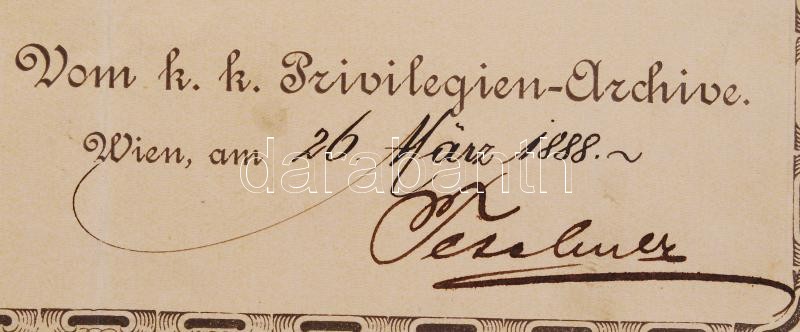 Vom k. k. Privilegien-Archive.
Wien, am 26. März 1888.~
darabanth